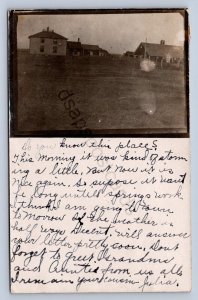 Do you know this place?
This Morning it was kind a storm
ing a little. But now it is
Nice again. So supose it want
be long until springs work.
I think I am going to town
to Morrow if the weather is
half ways Decent. will answer
your letter pretty soon. dont
forget to greet Grandma
and Aunties from us all
I reme am your cousin Julia.